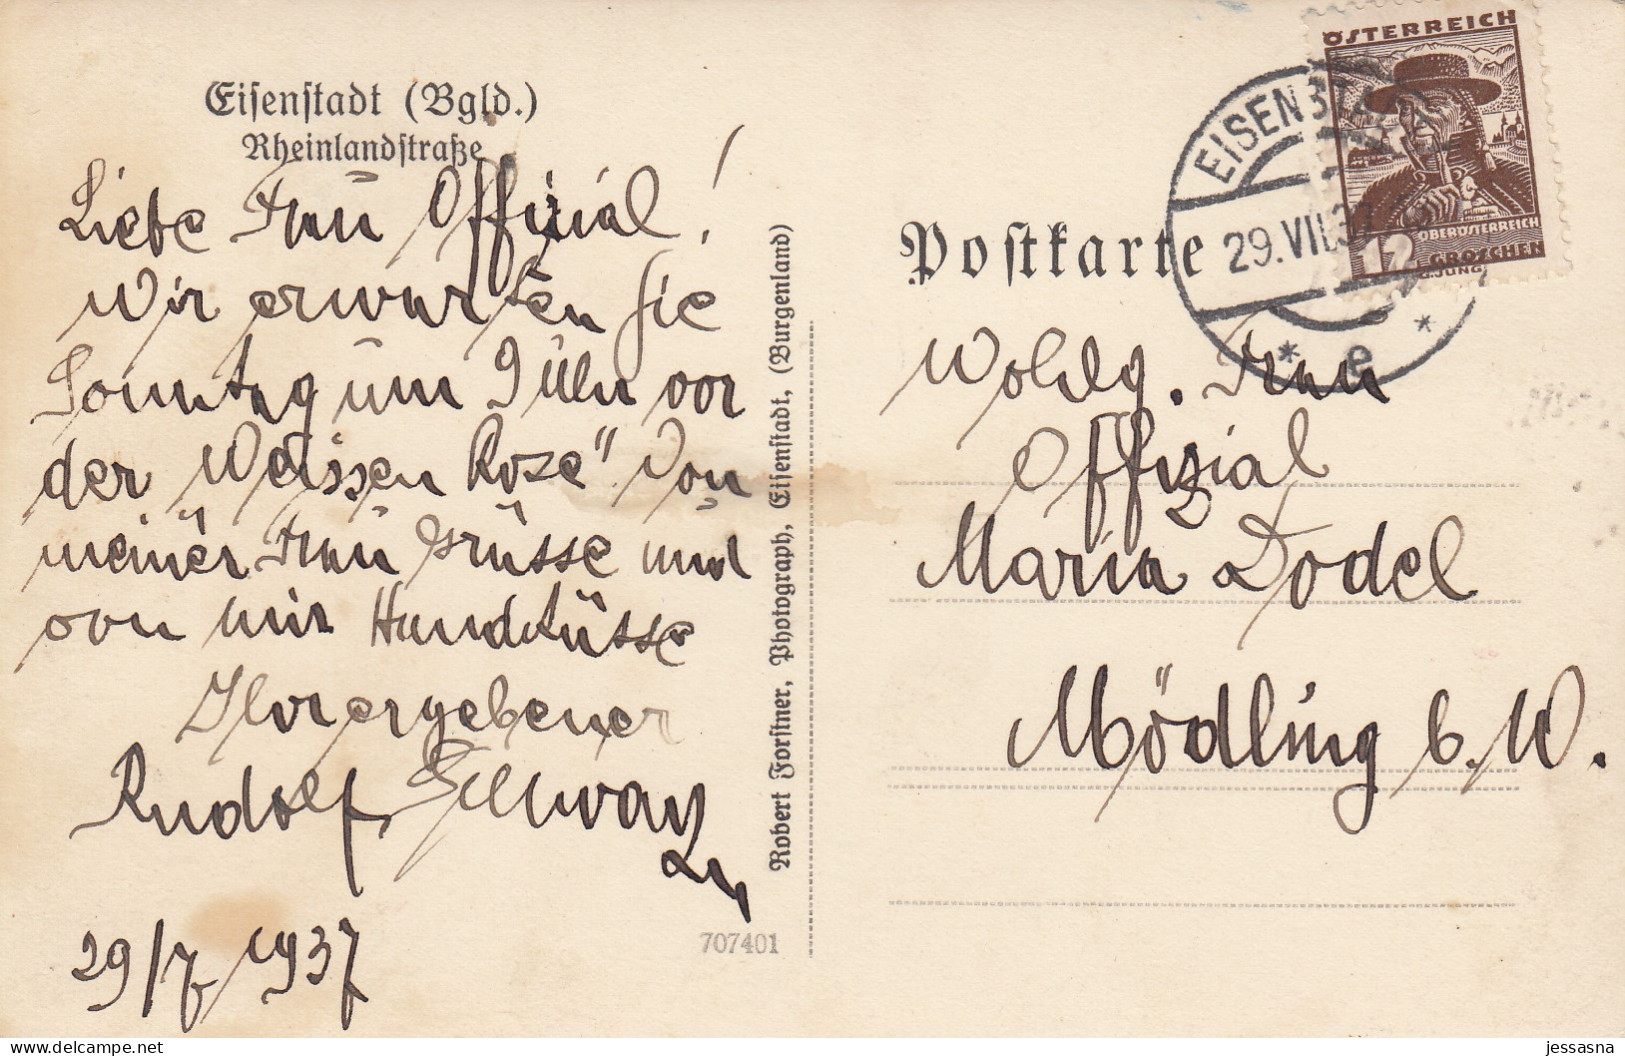 Eisenstadt (Bgld.)
Rheinlandstraße
Liebe Frau Offizial!
Wir erwarten Sie
Sonntag um 9 Uhr vor
der Weissen Rose" Von
meiner Frau Grüsse und
von mir Handküsse
Ihr ergebener
Rudolf
29/7 1937
Robert Forstner, Photograph, Eisenstadt, (Burgenland)
707401
Postkarte
EISENSTADT
29.VII.37
* e *
ÖSTERREICH
OBERÖSTERREICH
12 GROSCHEN
G.JUNG
Wohlg. Frau
Offizial
Maria Dodel
Mödling b. W.
delcampe.net
jessasna